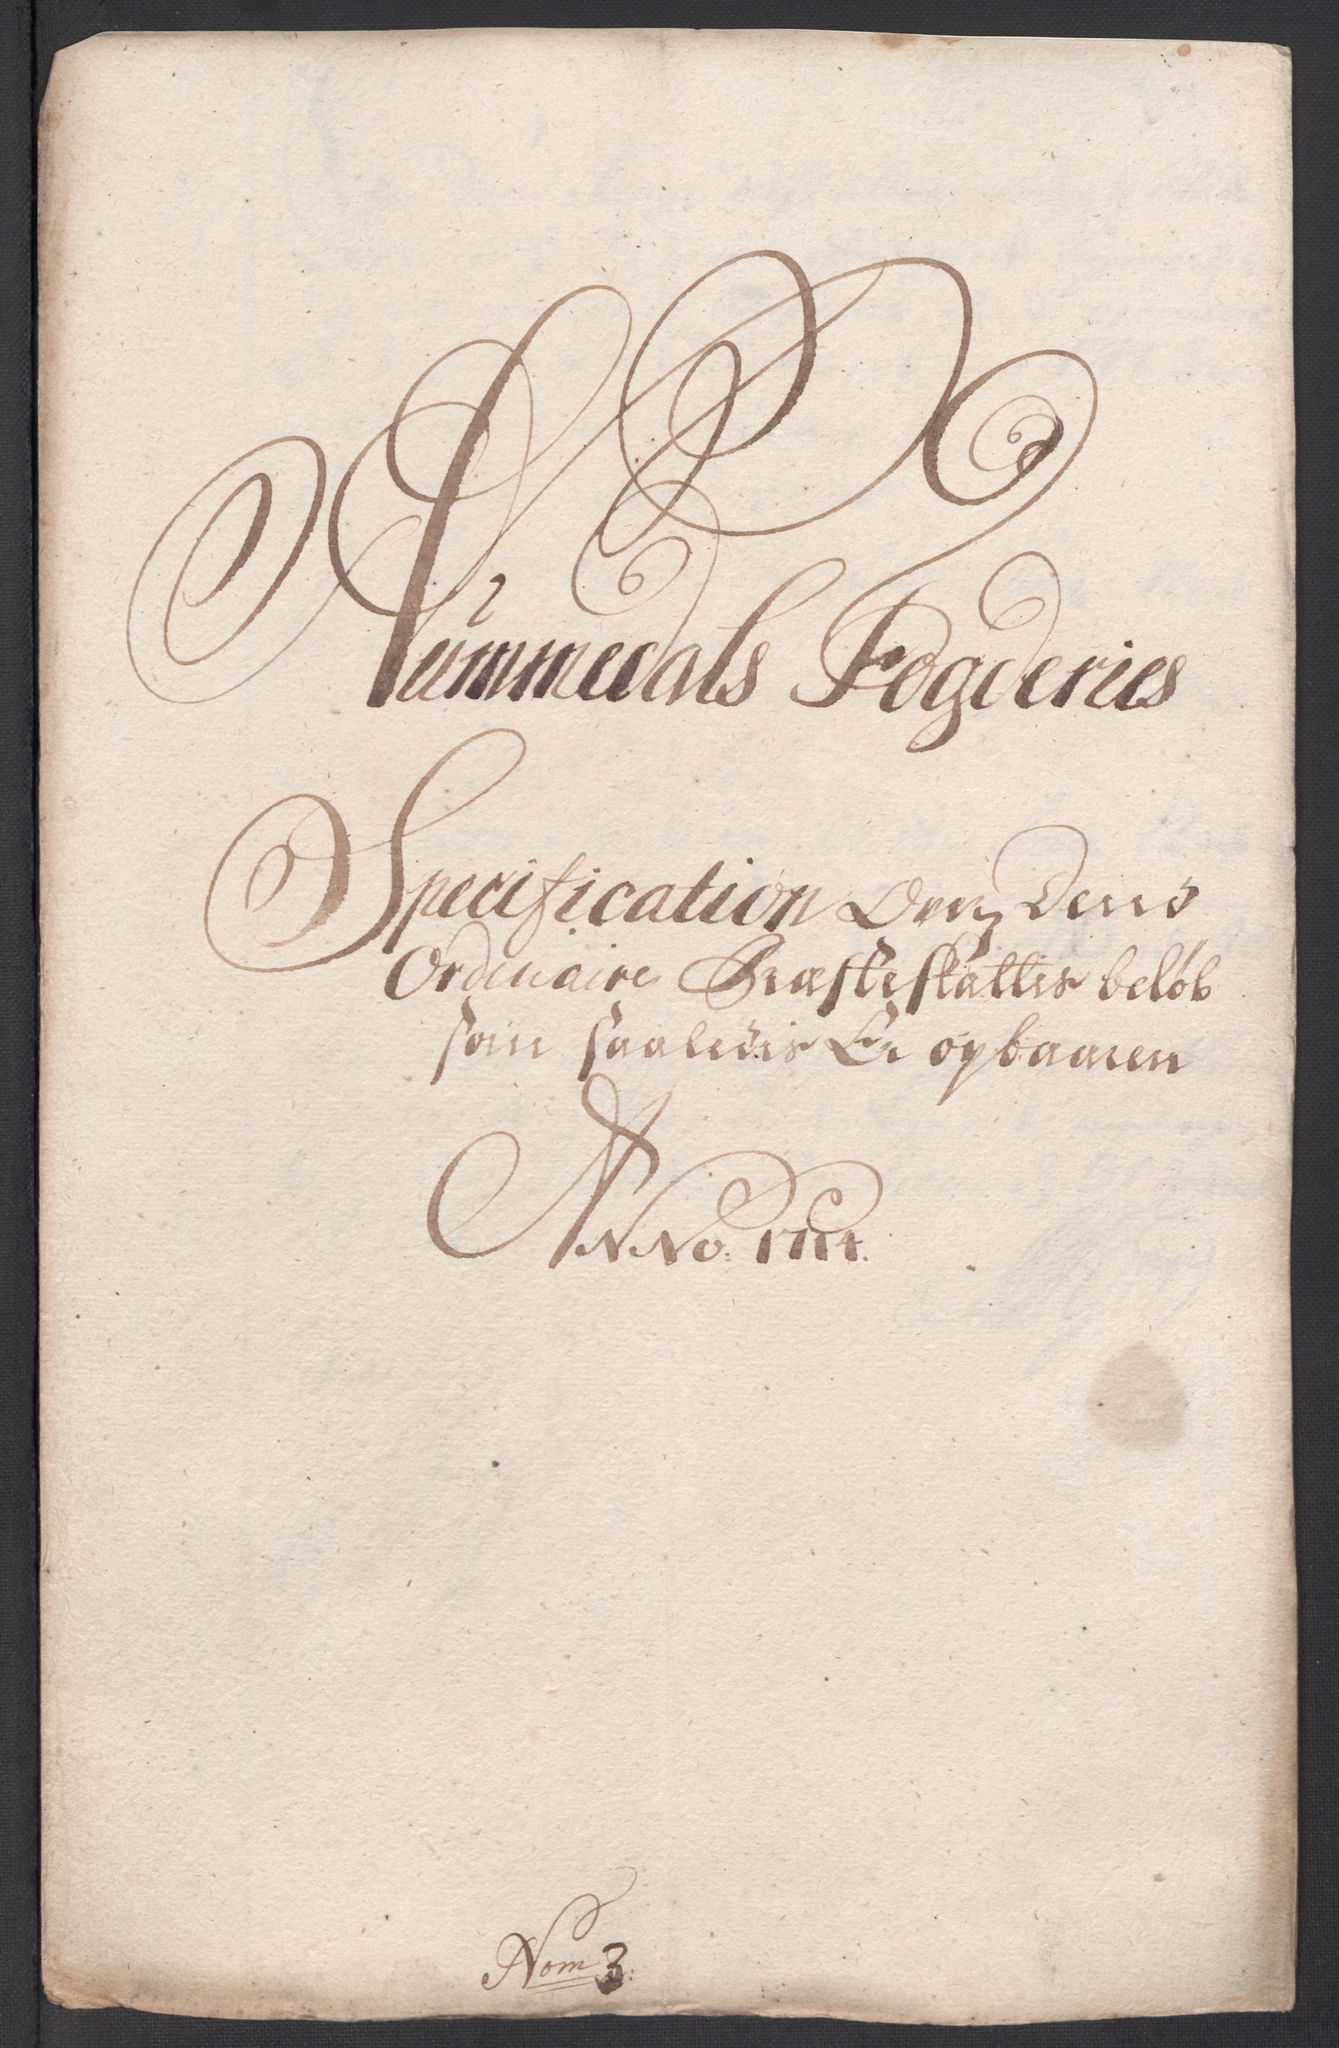 Nummedals Fogderies
Specification Over Dend
Ordinaire Græsteskattis beløb
som saaledis Er opbaaren
Anno: 1711.
Nom 3: